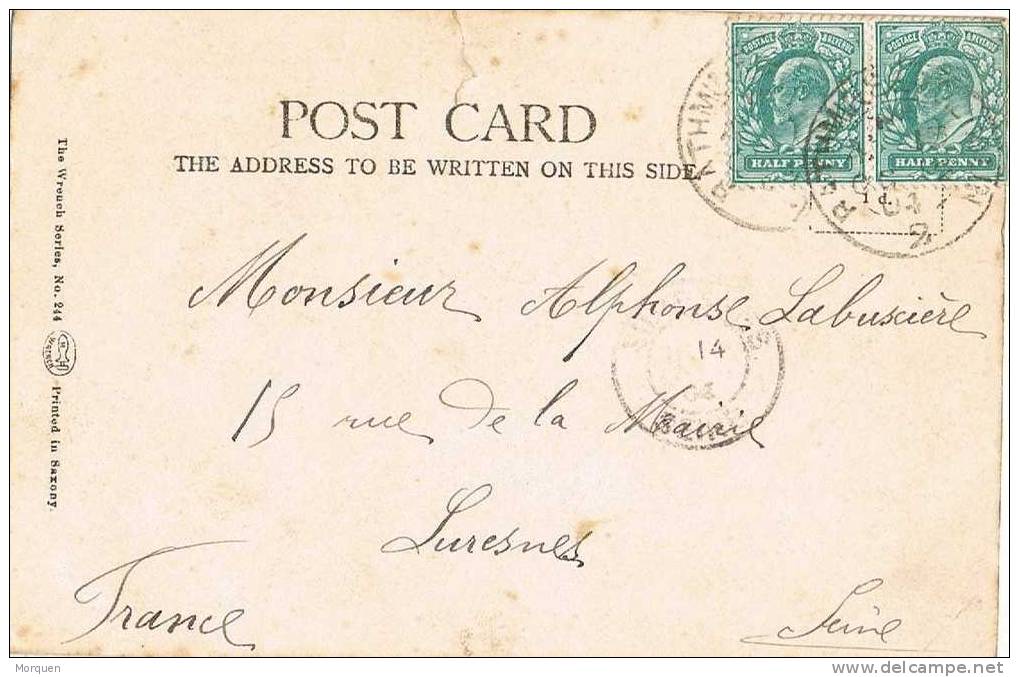 POSTAGE & REVENUE
POSTAGE & REVENUE
HALF PENNY
HALF PENNY
POST CARD
THE ADDRESS TO BE WRITTEN ON THIS SIDE
1d.
RATHM
The Wrench Series, No. 244
WRENCH
Printed in Saxony.
Monsieur Alphonse Labussière
14
15 rue de la Mairie
Suresnes
France
Seine
Morquen
delcampe.net